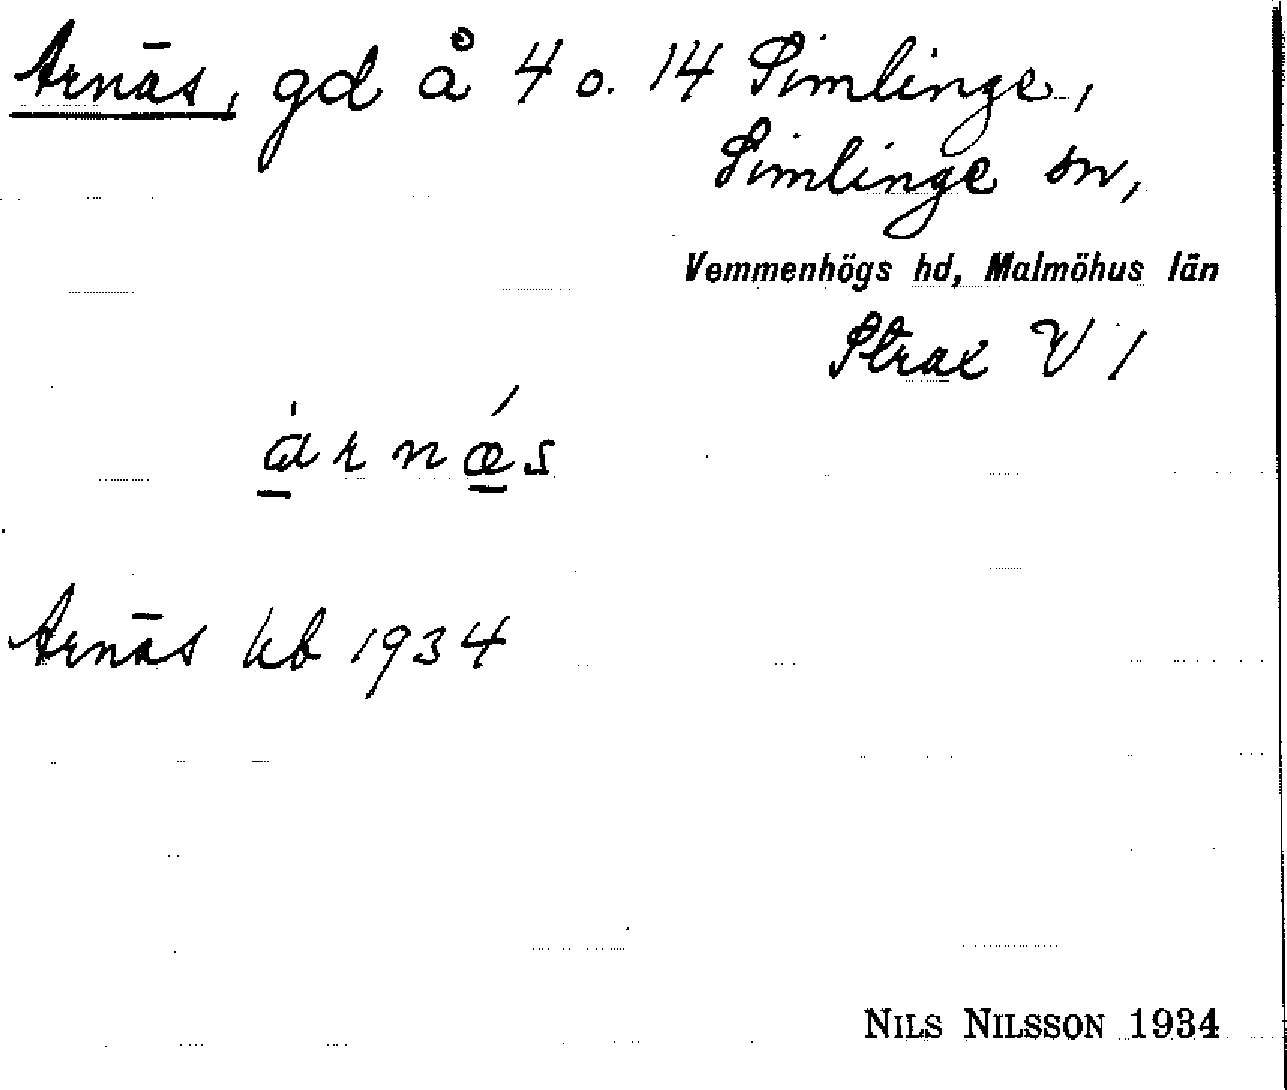 Arnäs, gd å 4 o. 14 Simlinge,
Simlinge sn,
Vemmenhögs hd, Malmöhus län
Strax V /
àrnǽs
Arnäs kb 1934
NILS NILSSON 1934